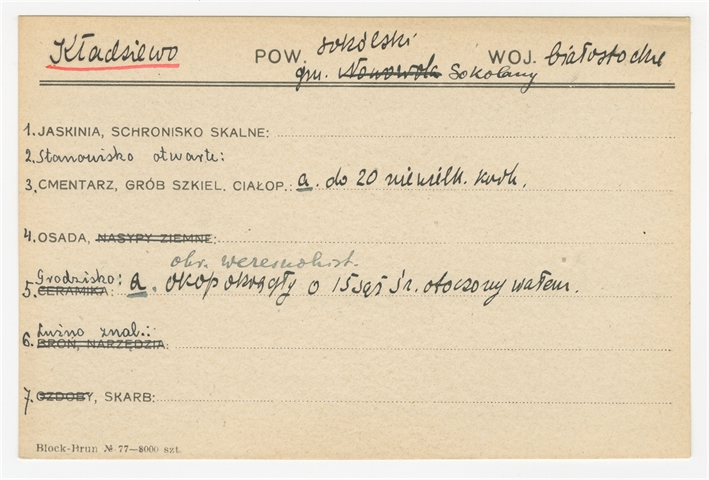 Kładziewo POW. sokólski WOJ. białostockie
gm. Nowowola Sokolany
1. JASKINIA, SCHRONISKO SKALNE:
2. Stanowisko otwarte:
3. CMENTARZ, GRÓB SZKIEL. CIAŁOP.: a. do 20 niewielk. kurh.
4. OSADA, NASYPY ZIEMNE:
okr. wczesnohist.
Grodzisko: a. okop okrągły o 15 sąż śr. otoczony wałem.
5. CERAMIKA:
Luźno znal.:
6. BROŃ, NARZĘDZIA:
7. OZDOBY, SKARB:
Block-Brun № 77—8000 szt.